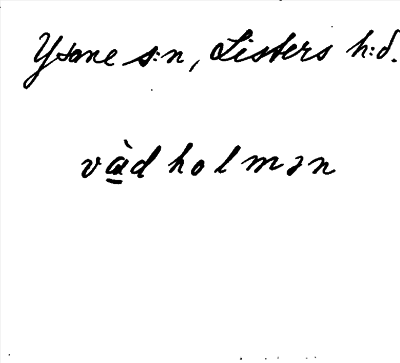 Ysane s:n, Listers h:d.
vàd holmən